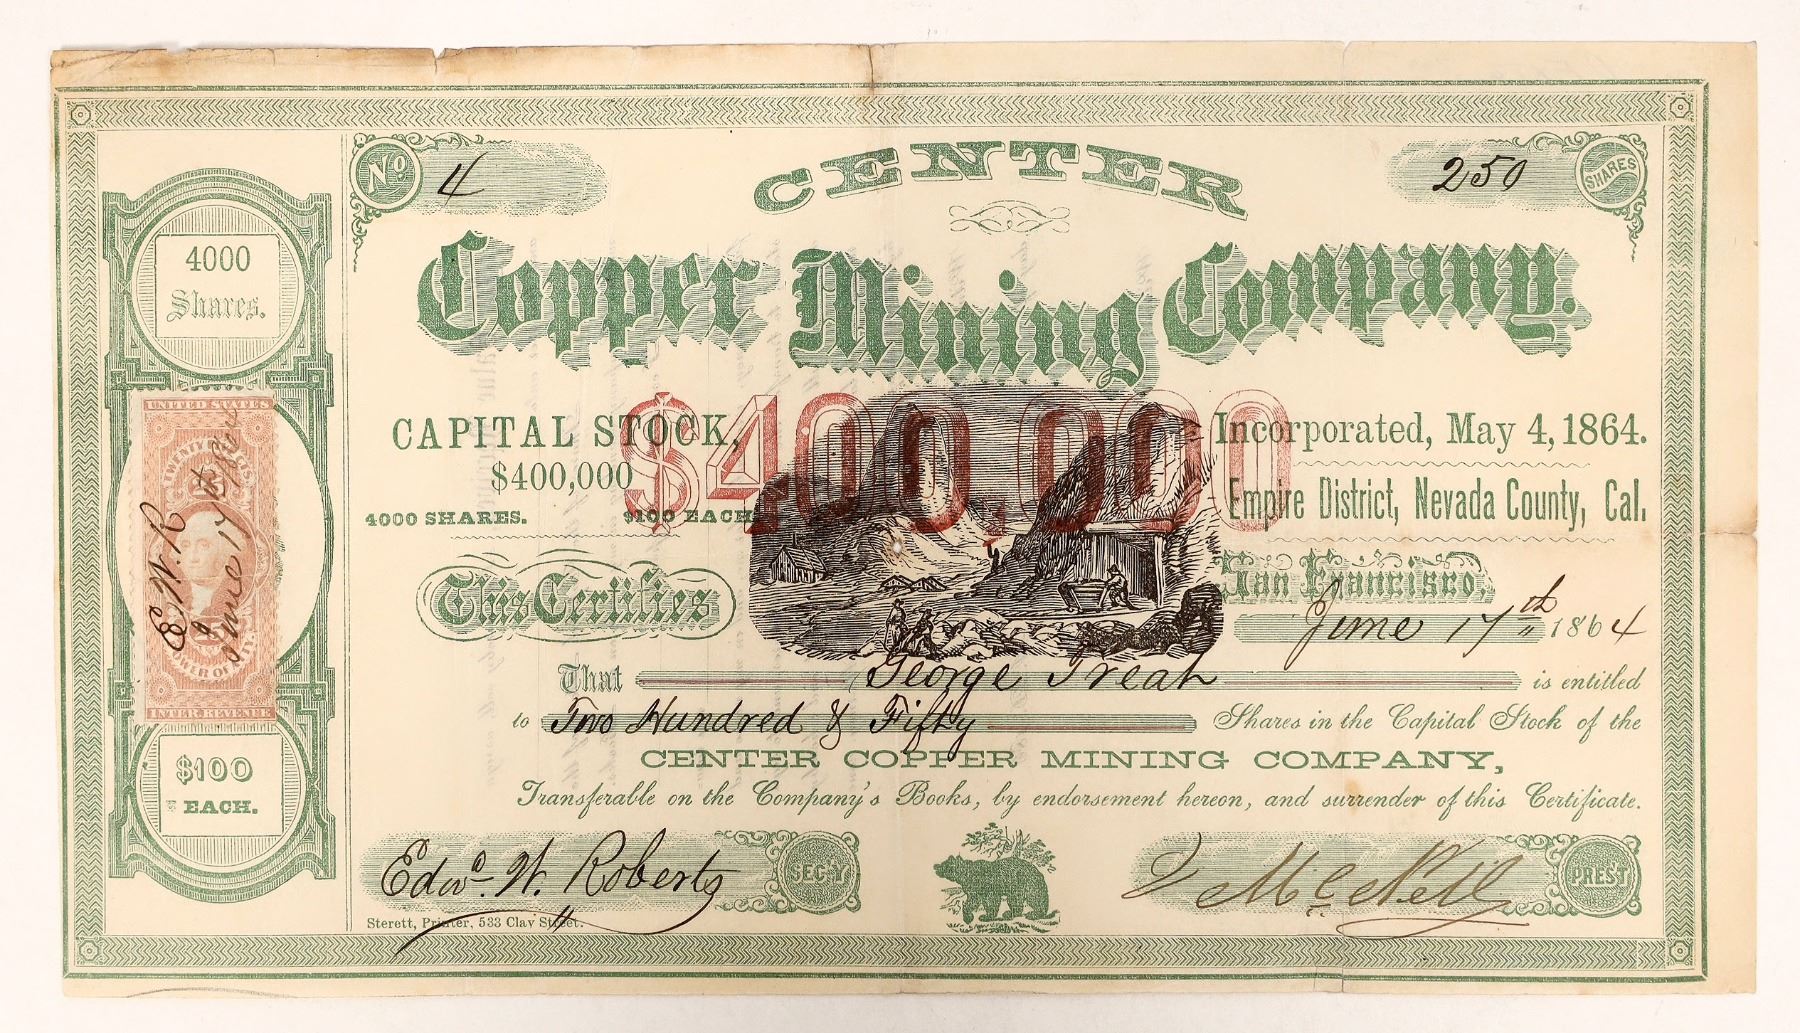 No 4
250 SHARES
CENTER
Copper Mining Company.
4000
Shares.
UNITED STATES
E. W. R
June 17th
INTER. REVENUE
$100
EACH.
CAPITAL STOCK,
$400,000
4000 SHARES. $100 EACH
$400,000
Incorporated, May 4, 1864.
Empire District, Nevada County, Cal.
This Certifies
San Francisco,
June 17th 1864
That George Treat is entitled
to Two Hundred & Fifty Shares in the Capital Stock of the
CENTER COPPER MINING COMPANY,
Transferable on the Company's Books, by endorsement hereon, and surrender of this Certificate.
Edwd. W. Roberts SEC'Y
McNeill PREST
Sterett, Printer, 533 Clay Street.